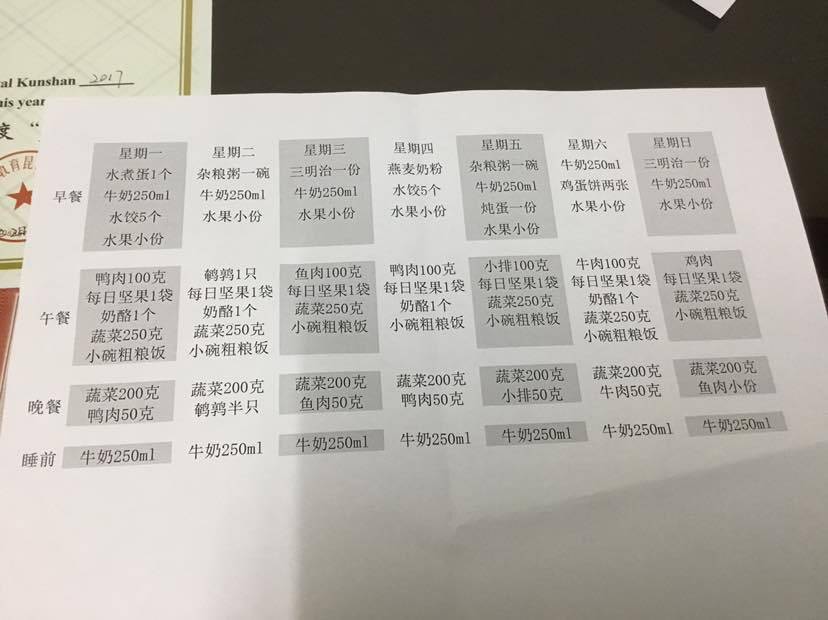 al Kunshan 2017
his year
度 “
星期一 星期二 星期三 星期四 星期五 星期六 星期日
早餐
水煮蛋1个 杂粮粥一碗 三明治一份 燕麦奶粉 杂粮粥一碗 牛奶250ml 三明治一份
牛奶250ml 牛奶250ml 牛奶250ml 水饺5个 牛奶250ml 鸡蛋饼两张 牛奶250ml
水饺5个 水果小份 水果小份 水果小份 炖蛋一份 水果小份 水果小份
水果小份 水果小份
午餐
鸭肉100克 鹌鹑1只 鱼肉100克 鸭肉100克 小排100克 牛肉100克 鸡肉
每日坚果1袋 每日坚果1袋 每日坚果1袋 每日坚果1袋 每日坚果1袋 每日坚果1袋 每日坚果1袋
奶酪1个 奶酪1个 蔬菜250克 奶酪1个 蔬菜250克 奶酪1个 蔬菜250克
蔬菜250克 蔬菜250克 小碗粗粮饭 蔬菜250克 小碗粗粮饭 蔬菜250克 小碗粗粮饭
小碗粗粮饭 小碗粗粮饭 小碗粗粮饭 小碗粗粮饭
晚餐
蔬菜200克 蔬菜200克 蔬菜200克 蔬菜200克 蔬菜200克 蔬菜200克 蔬菜200克
鸭肉50克 鹌鹑半只 鱼肉50克 鸭肉50克 小排50克 牛肉50克 鱼肉小份
睡前 牛奶250ml 牛奶250ml 牛奶250ml 牛奶250ml 牛奶250ml 牛奶250ml 牛奶250ml